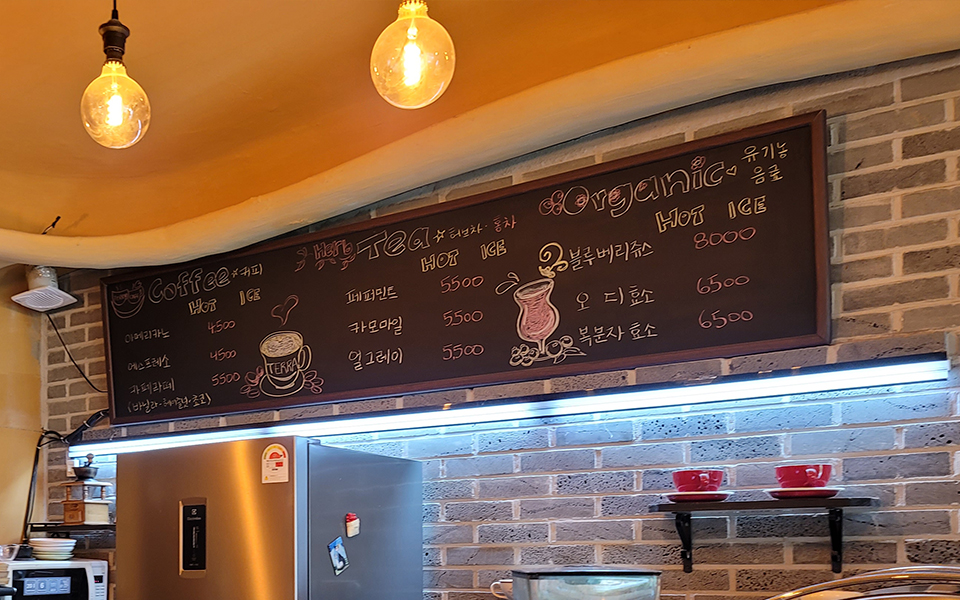 Coffee 커피
HOT ICE
아메리카노 4500
에스프레소 4500
카페라떼 5500
(바닐라·헤이즐넛·초코)
TERRA
Herb Tea 허브차·홍차
HOT ICE
페퍼민트 5500
카모마일 5500
얼그레이 5500
Organic 유기농
음료
HOT ICE
블루베리쥬스 8000
오디효소 6500
복분자효소 6500